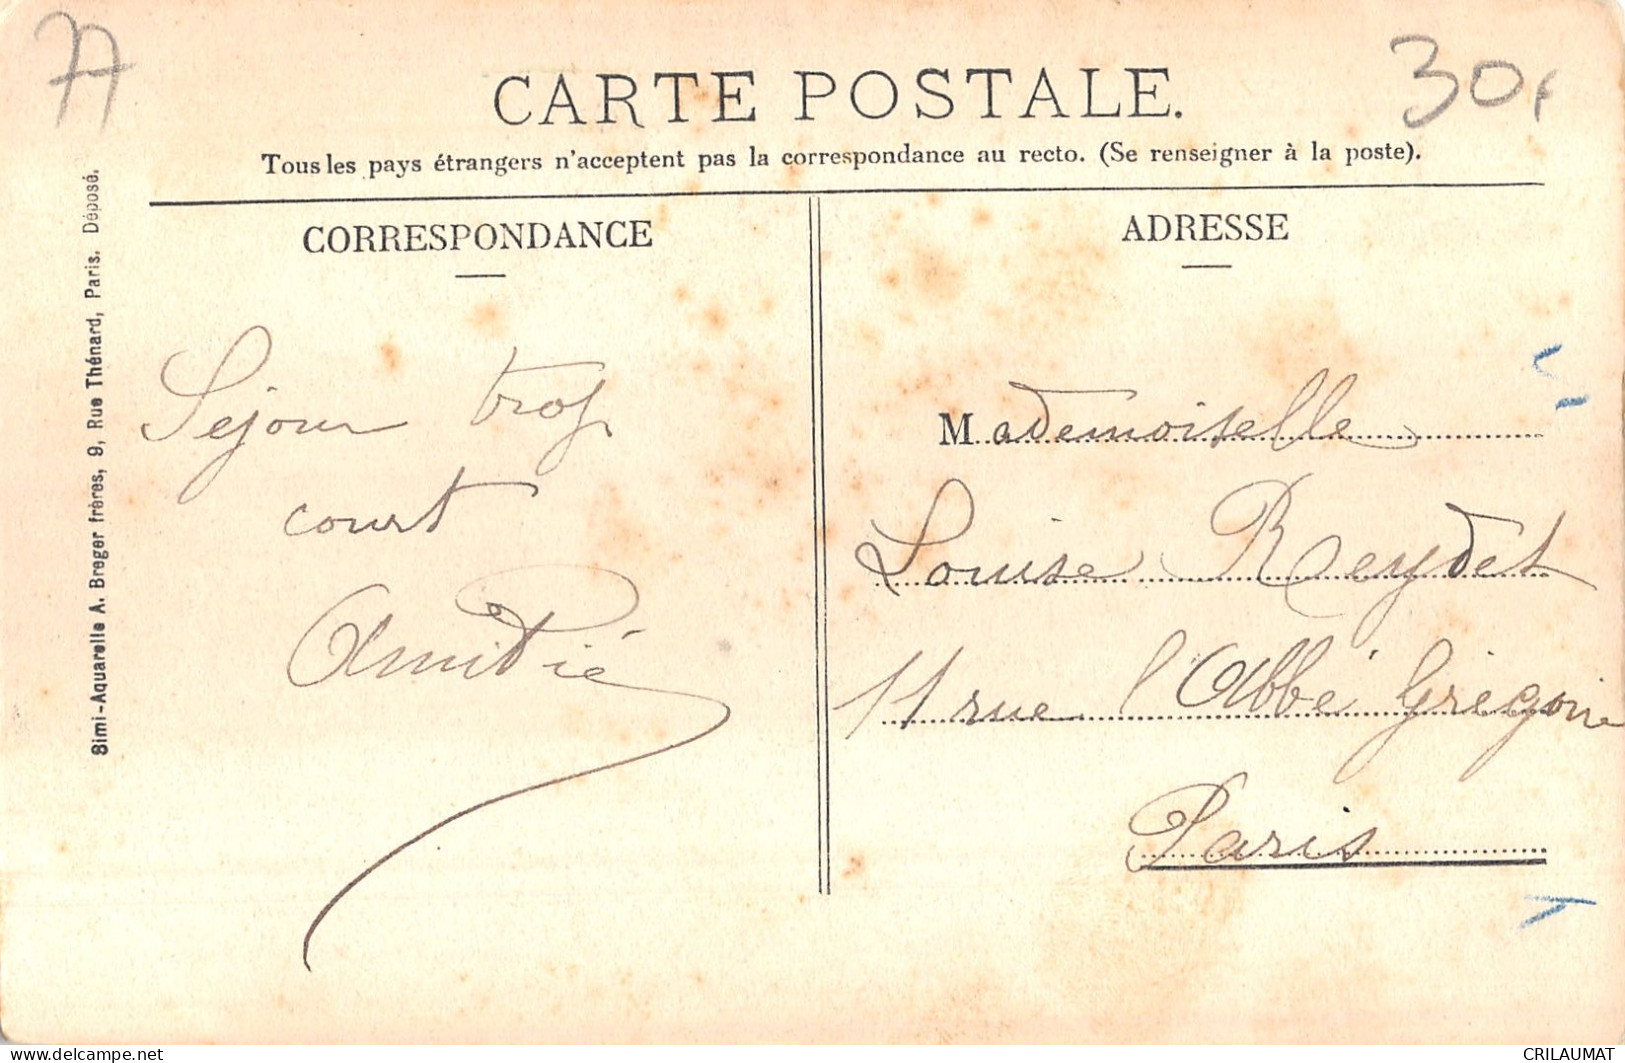 77
30f
CARTE POSTALE.
Tous les pays étrangers n'acceptent pas la correspondance au recto. (Se renseigner à la poste).
Simi-Aquarelle A. Breger frères, 9, Rue Thénard, Paris. Déposé.
CORRESPONDANCE
Séjour trop
court
Amitié
ADRESSE
Mademoiselle
Louise Reydet
11 rue l'Abbé Grégoire
Paris
www.delcampe.net
CRILAUMAT